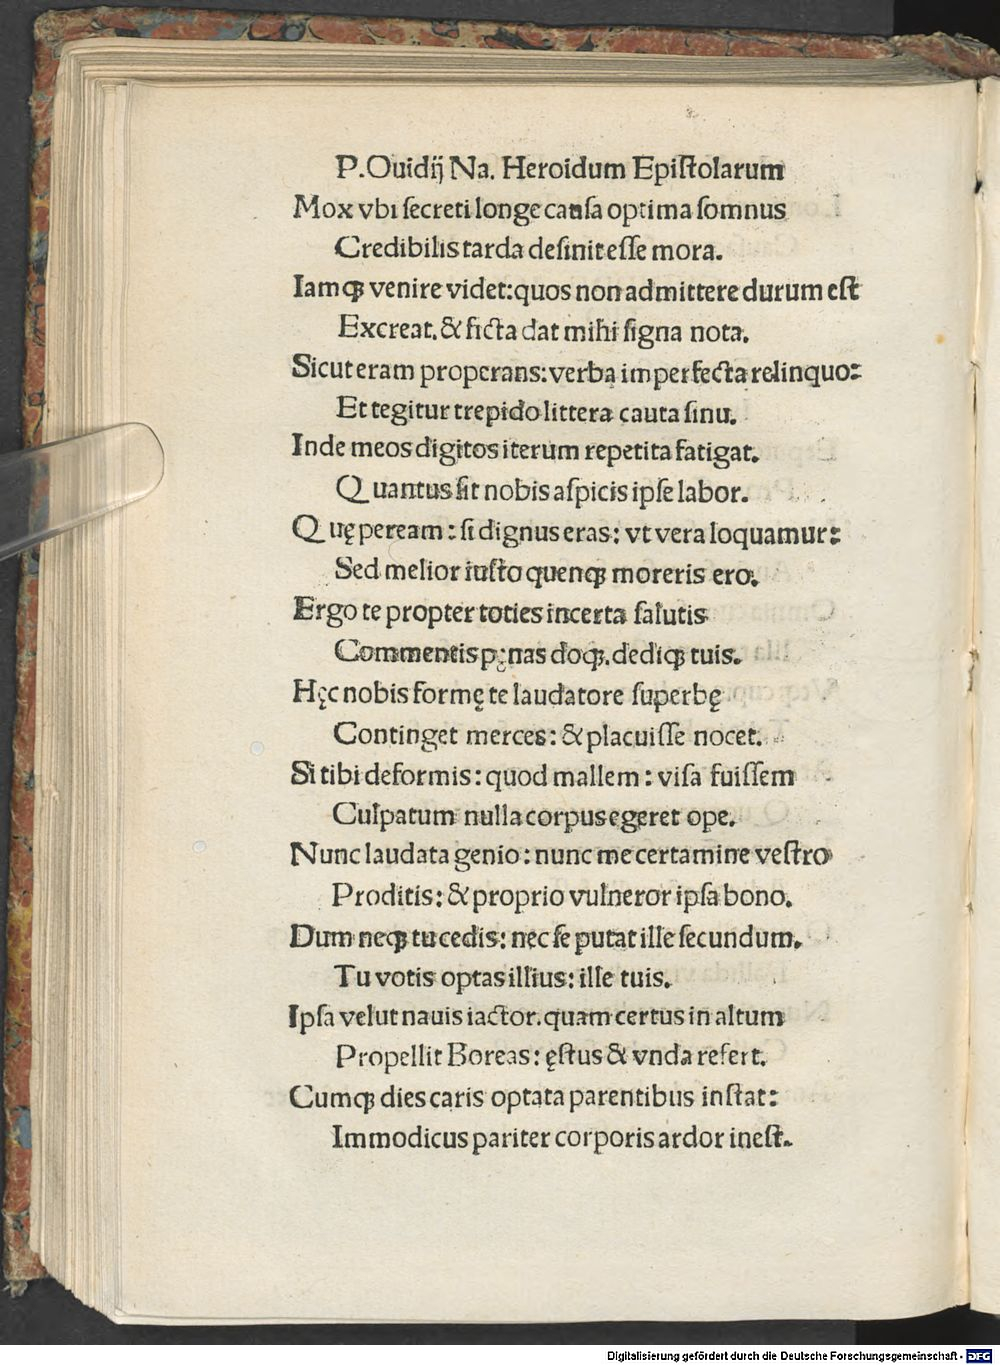 P. Ouidij Na. Heroidum Epiſtolarum
Mox vbi ſecreti longe cauſa optima ſomnus
Credibilis tarda deſinit eſſe mora.
Iamqꝫ venire videt: quos non admittere durum eſt
Excreat. & ficta dat mihi ſigna nota.
Sicut eram properans: verba imperfecta relinquo:
Et tegitur trepido littera cauta ſinu.
Inde meos digitos iterum repetita fatigat.
Quantus ſit nobis aſpicis ipſe labor.
Quę peream: ſi dignus eras: vt vera loquamur:
Sed melior iuſto quenqꝫ moreris ero.
Ergo te propter toties incerta ſalutis
Commentis pęnas doqꝫ. dediqꝫ tuis.
Hęc nobis formę te laudatore ſuperbę
Continget merces: & placuiſſe nocet.
Si tibi deformis: quod mallem: viſa fuiſſem
Culpatum nulla corpus egeret ope.
Nunc laudata genio: nunc me certamine veſtro
Proditis: & proprio vulneror ipſa bono.
Dum neqꝫ tu cedis: nec ſe putat ille ſecundum.
Tu votis optas illius: ille tuis.
Ipſa velut nauis iactor. quam certus in altum
Propellit Boreas: ęſtus & vnda refert.
Cumqꝫ dies caris optata parentibus inſtat:
Immodicus pariter corporis ardor ineſt.
Digitalisierung gefördert durch die Deutsche Forschungsgemeinschaft - DFG